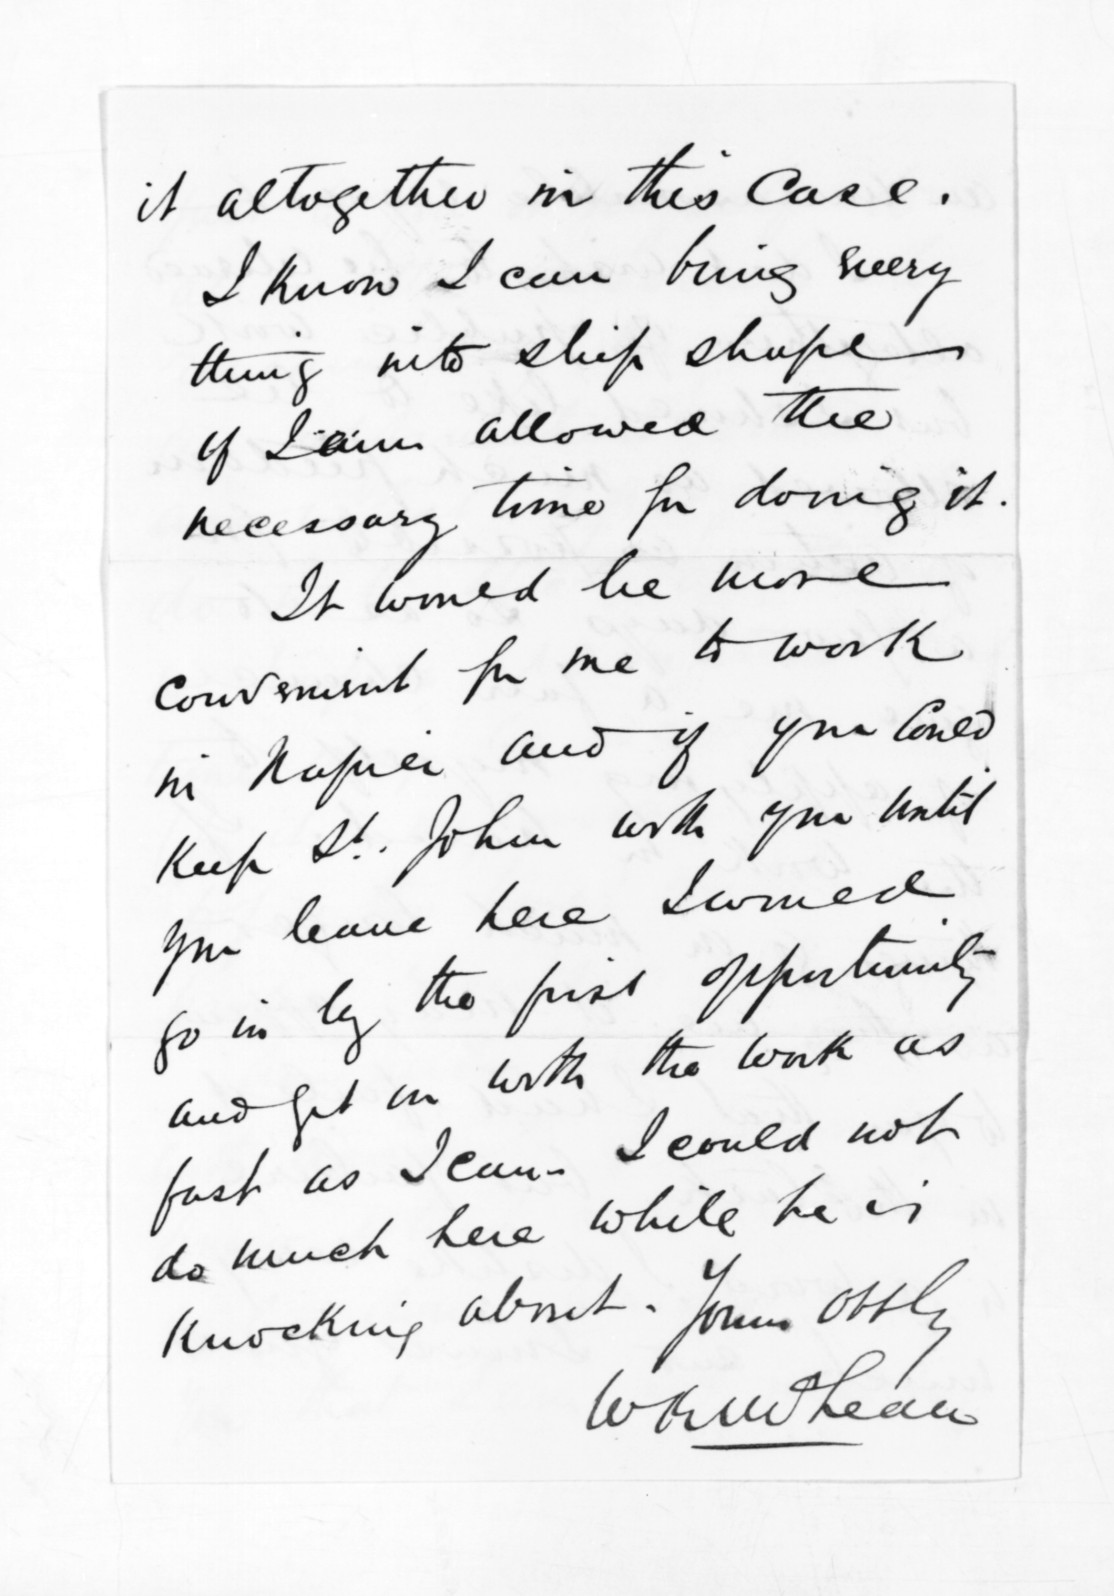 it altogether in this Case.
I know I can bring every
thing into ship shape
if I am allowed the
necessary time for doing it.
It would be more
convenient for me to work
in Napier and if you could
keep St. John with you until
you leave here I would
go in by the first opportunity
and get on with the work as
fast as I can - I could not
do much here while he is
knocking about. Yours Obtly